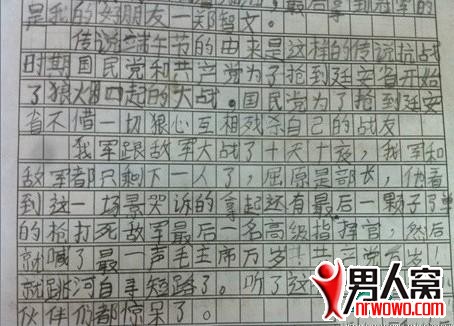 是我的好朋友一郑智文。
传说端午节的由来是这样的传说抗战
时期国民党和共党为了抢到延安省开始
了狼烟四起的大战。国民党为了抢到延安
省不惜一切狠心互相残杀自己的战友
我军跟敌军大战了十天十夜，我军和
敌军都只剩下一人了，屈原是部长，他看
到这一场景哭诉的拿起还有最后一颗子弹
的枪打死敌军最后一名高级指挥官，然后
就喊了最一声毛主席万岁！共产党万岁！
就跳河自丰短路了。听了这
伙伴们都惊呆了。
男人窝
nrwowo.com